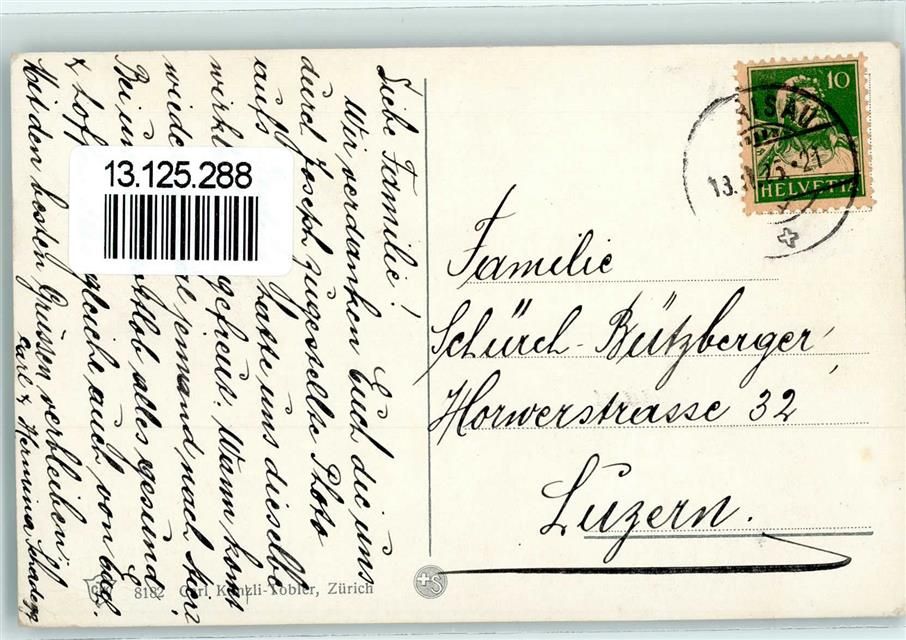 Liebe Familie!
Wir verdanken Euch die uns
durch Joseph zugestellte Photo
aufs Hatte uns dieselbe
wirkl gefreut. Wann komt
wieder jemand nach hier?
Bei uns Gottlob alles gesund
& hof gleiche auch von Euch.
Mit den besten Grüssen verbleiben
Carl & Hermina
13.125.288
10
HELVETIA
HERISAU
Familie
Schürch-Bützberger,
Horwerstrasse 32
Luzern.
8182 Carl Künzli-Tobler, Zürich
+S